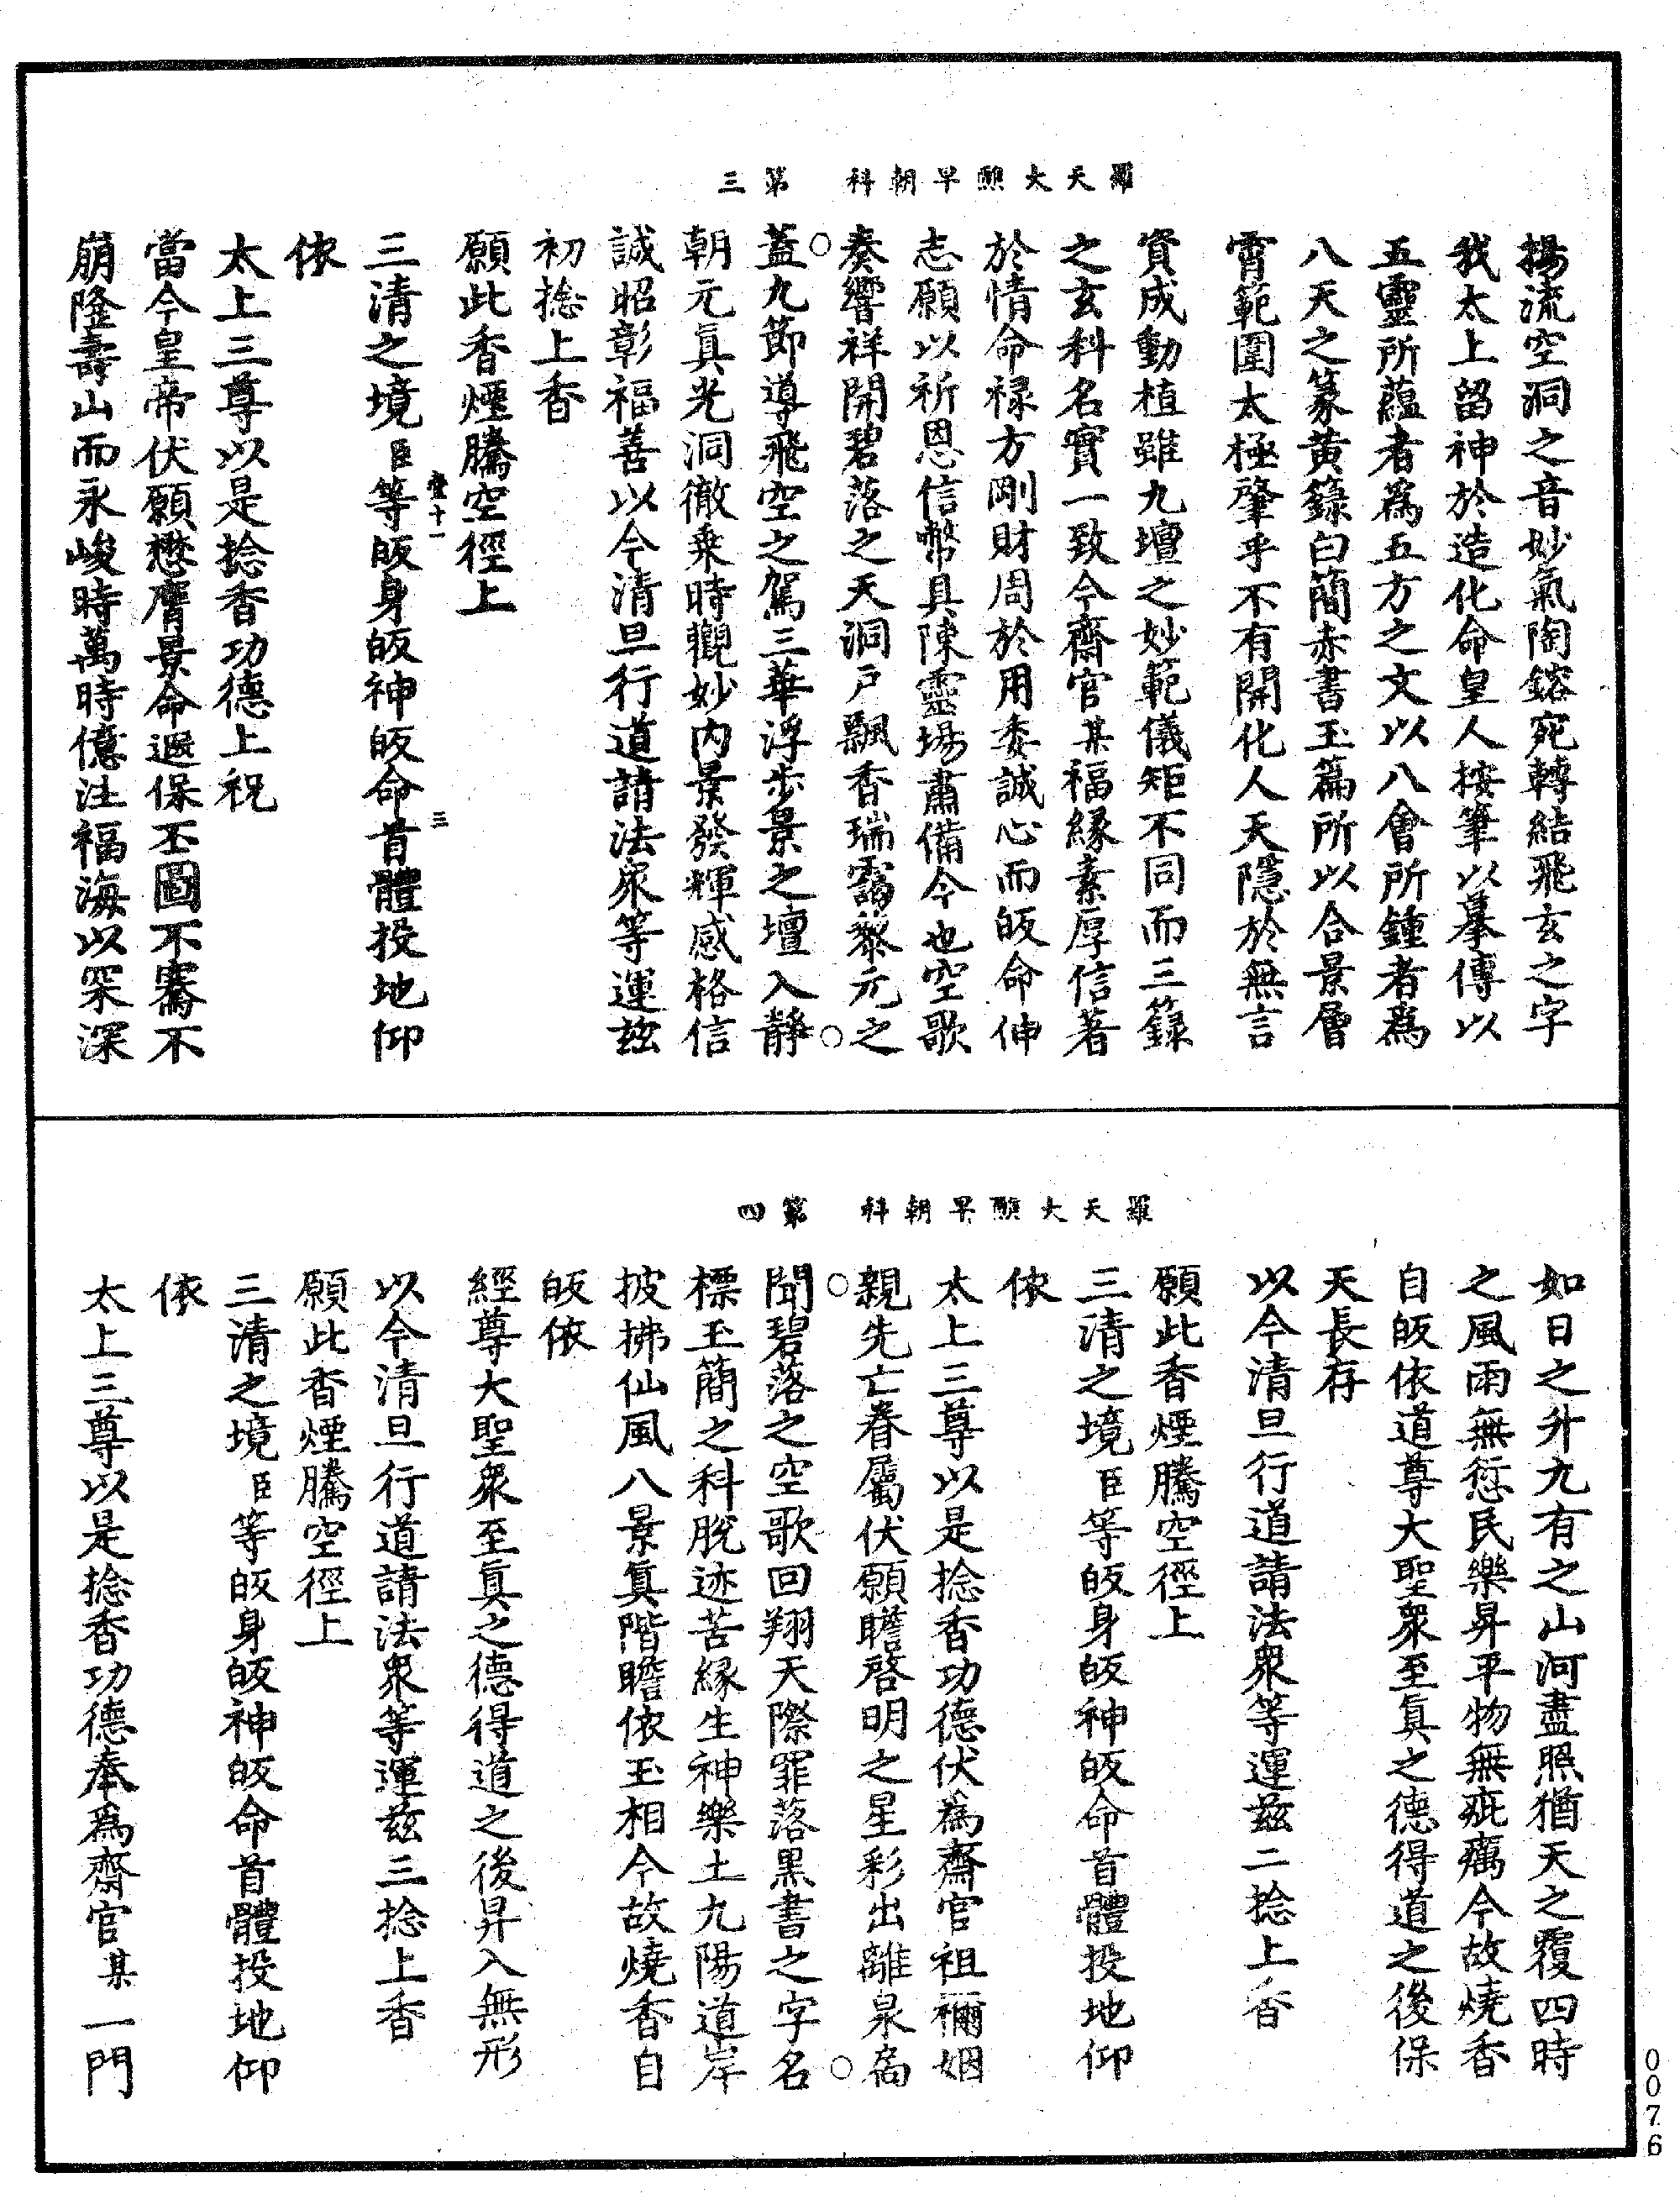 羅天大醮早朝科 第三
揚流空洞之音妙氣陶鎔宛轉結飛玄之字
我太上留神於造化命皇人按筆以摹傳以
五靈所蘊者爲五方之文以八會所鍾者爲
八天之篆黄籙白簡赤書玉篇所以合景層
霄範圍太極肇乎不有開化人天隱於無言
資成動植雖九壇之妙範儀矩不同而三籙
之玄科名實一致今齋官某福緣素厚信著
於情命禄方剛財周於用委誠心而皈命伸
志願以祈恩信幣具陳靈場肅備今也空歌
奏響祥開碧落之天洞戶飄香瑞靄黎元之
蓋九節導飛空之駕三華浮步景之壇入静
朝元真光洞徹乗時觀妙内景發輝感格信
誠昭彰福善以今清旦行道請法衆等運兹
初捻上香
願此香煙騰空徑上
壹十一 三
三清之境臣等皈身皈神皈命首體投地仰
依
太上三尊以是捻香功德上祝
當今皇帝伏願懋膺景命遐保丕圖不騫不
崩隆壽山而永峻時萬時億注福海以罙深
羅天大醮早朝科 第四
如日之升九有之山河盡照猶天之覆四時
之風雨無愆民樂昇平物無疵癘今故燒香
自皈依道尊大聖衆至真之德得道之後保
天長存
以今清旦行道請法衆等運兹二捻上香
願此香煙騰空徑上
三清之境臣等皈身皈神皈命首體投地仰
依
太上三尊以是捻香功德伏爲齋官祖禰姻
親先亡眷屬伏願瞻啓明之星彩出離泉扃
聞碧落之空歌回翔天際罪落黑書之字名
標玉簡之科脫迹苦緣生神樂土九陽道岸
披拂仙風八景真階瞻依玉相今故燒香自
皈依
經尊大聖衆至真之德得道之後昇入無形
以今清旦行道請法衆等運兹三捻上香
願此香煙騰空徑上
三清之境臣等皈身皈神皈命首體投地仰
依
太上三尊以是捻香功德奉爲齋官某一門
0076